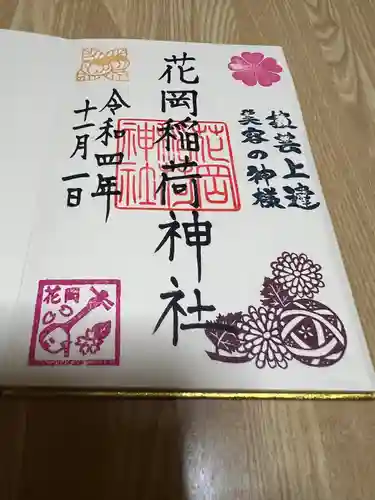 技芸上達
笑容の神様
花岡稲荷神社
花岡稲荷神社
令和四年
十一月一日
花岡